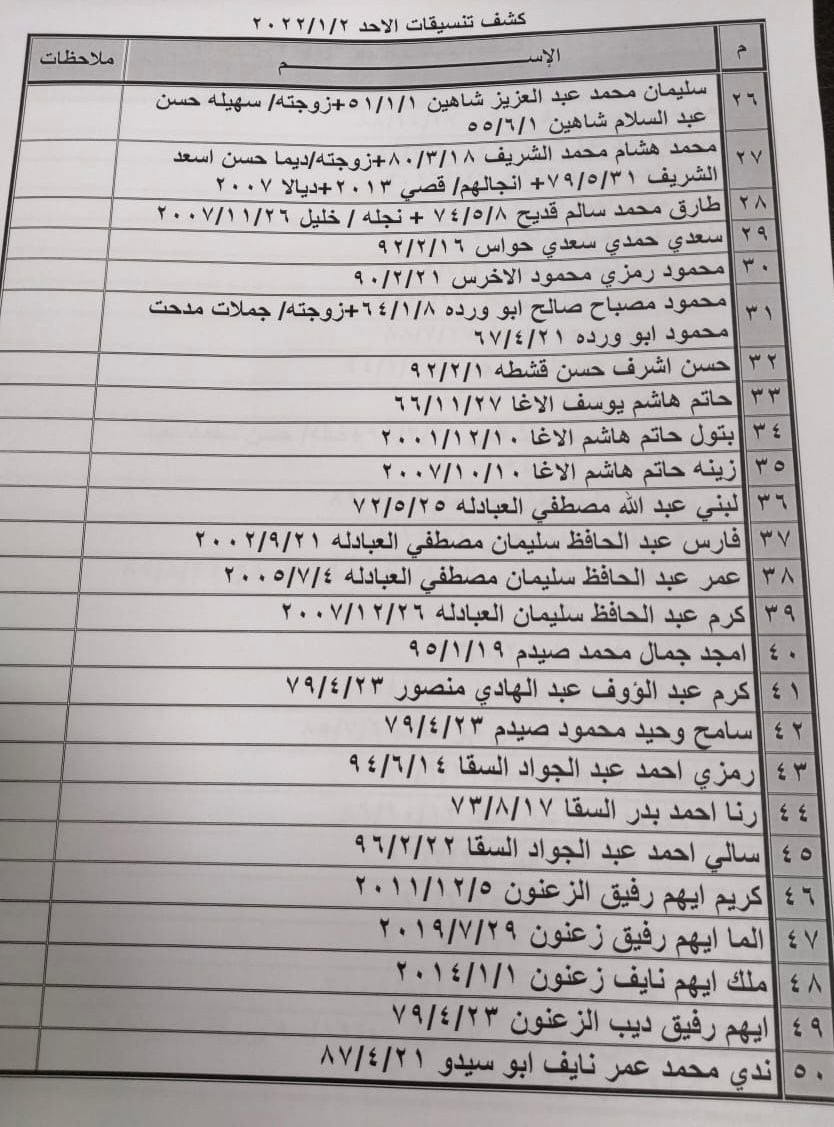 كشف تنسيقات الاحد ٢٠٢٢/١/٢
م الإســــــــم ملاحظات
٢٦ سليمان محمد عبد العزيز شاهين ٥١/١/١+زوجته/ سهيله حسن
عبد السلام شاهين ٥٥/٦/١
٢٧ محمد هشام محمد الشريف ٨٠/٣/١٨+زوجته/ديما حسن اسعد
الشريف ٧٩/٥/٣١+ انجالهم/ قصي ٢٠١٣+ديالا ٢٠٠٧
٢٨ طارق محمد سالم قديح ٧٤/٥/٨ + نجله / خليل ٢٠٠٧/١١/٢٦
٢٩ سعدي حمدي سعدي حواس ٩٢/٢/١٦
٣٠ محمود رمزي محمود الاخرس ٩٠/٢/٢١
٣١ محمود مصباح صالح ابو ورده ٦٤/١/٨+زوجته/ جملات مدحت
محمود ابو ورده ٦٧/٤/٢١
٣٢ حسن اشرف حسن قشطه ٩٢/٢/١
٣٣ حاتم هاشم يوسف الاغا ٦٦/١١/٢٧
٣٤ بتول حاتم هاشم الاغا ٢٠٠١/١٢/١٠
٣٥ زينه حاتم هاشم الاغا ٢٠٠٧/١٠/١٠
٣٦ لبني عبد الله مصطفي العبادله ٧٢/٥/٢٥
٣٧ فارس عبد الحافظ سليمان مصطفي العبادله ٢٠٠٢/٩/٢١
٣٨ عمر عبد الحافظ سليمان مصطفي العبادله ٢٠٠٥/٧/٤
٣٩ كرم عبد الحافظ سليمان العبادله ٢٠٠٧/١٢/٢٦
٤٠ امجد جمال محمد صيدم ٩٥/١/١٩
٤١ كرم عبد الؤوف عبد الهادي منصور ٧٩/٤/٢٣
٤٢ سامح وحيد محمود صيدم ٧٩/٤/٢٣
٤٣ رمزي احمد عبد الجواد السقا ٩٤/٦/١٤
٤٤ رنا احمد بدر السقا ٧٣/٨/١٧
٤٥ سالي احمد عبد الجواد السقا ٩٦/٢/٢٢
٤٦ كريم ايهم رفيق الزعنون ٢٠١١/١٢/٥
٤٧ الما ايهم رفيق زعنون ٢٠١٩/٧/٢٩
٤٨ ملك ايهم نايف زعنون ٢٠١٤/١/١
٤٩ ايهم رفيق ديب الزعنون ٧٩/٤/٢٣
٥٠ ندي محمد عمر نايف ابو سيدو ٨٧/٤/٢١